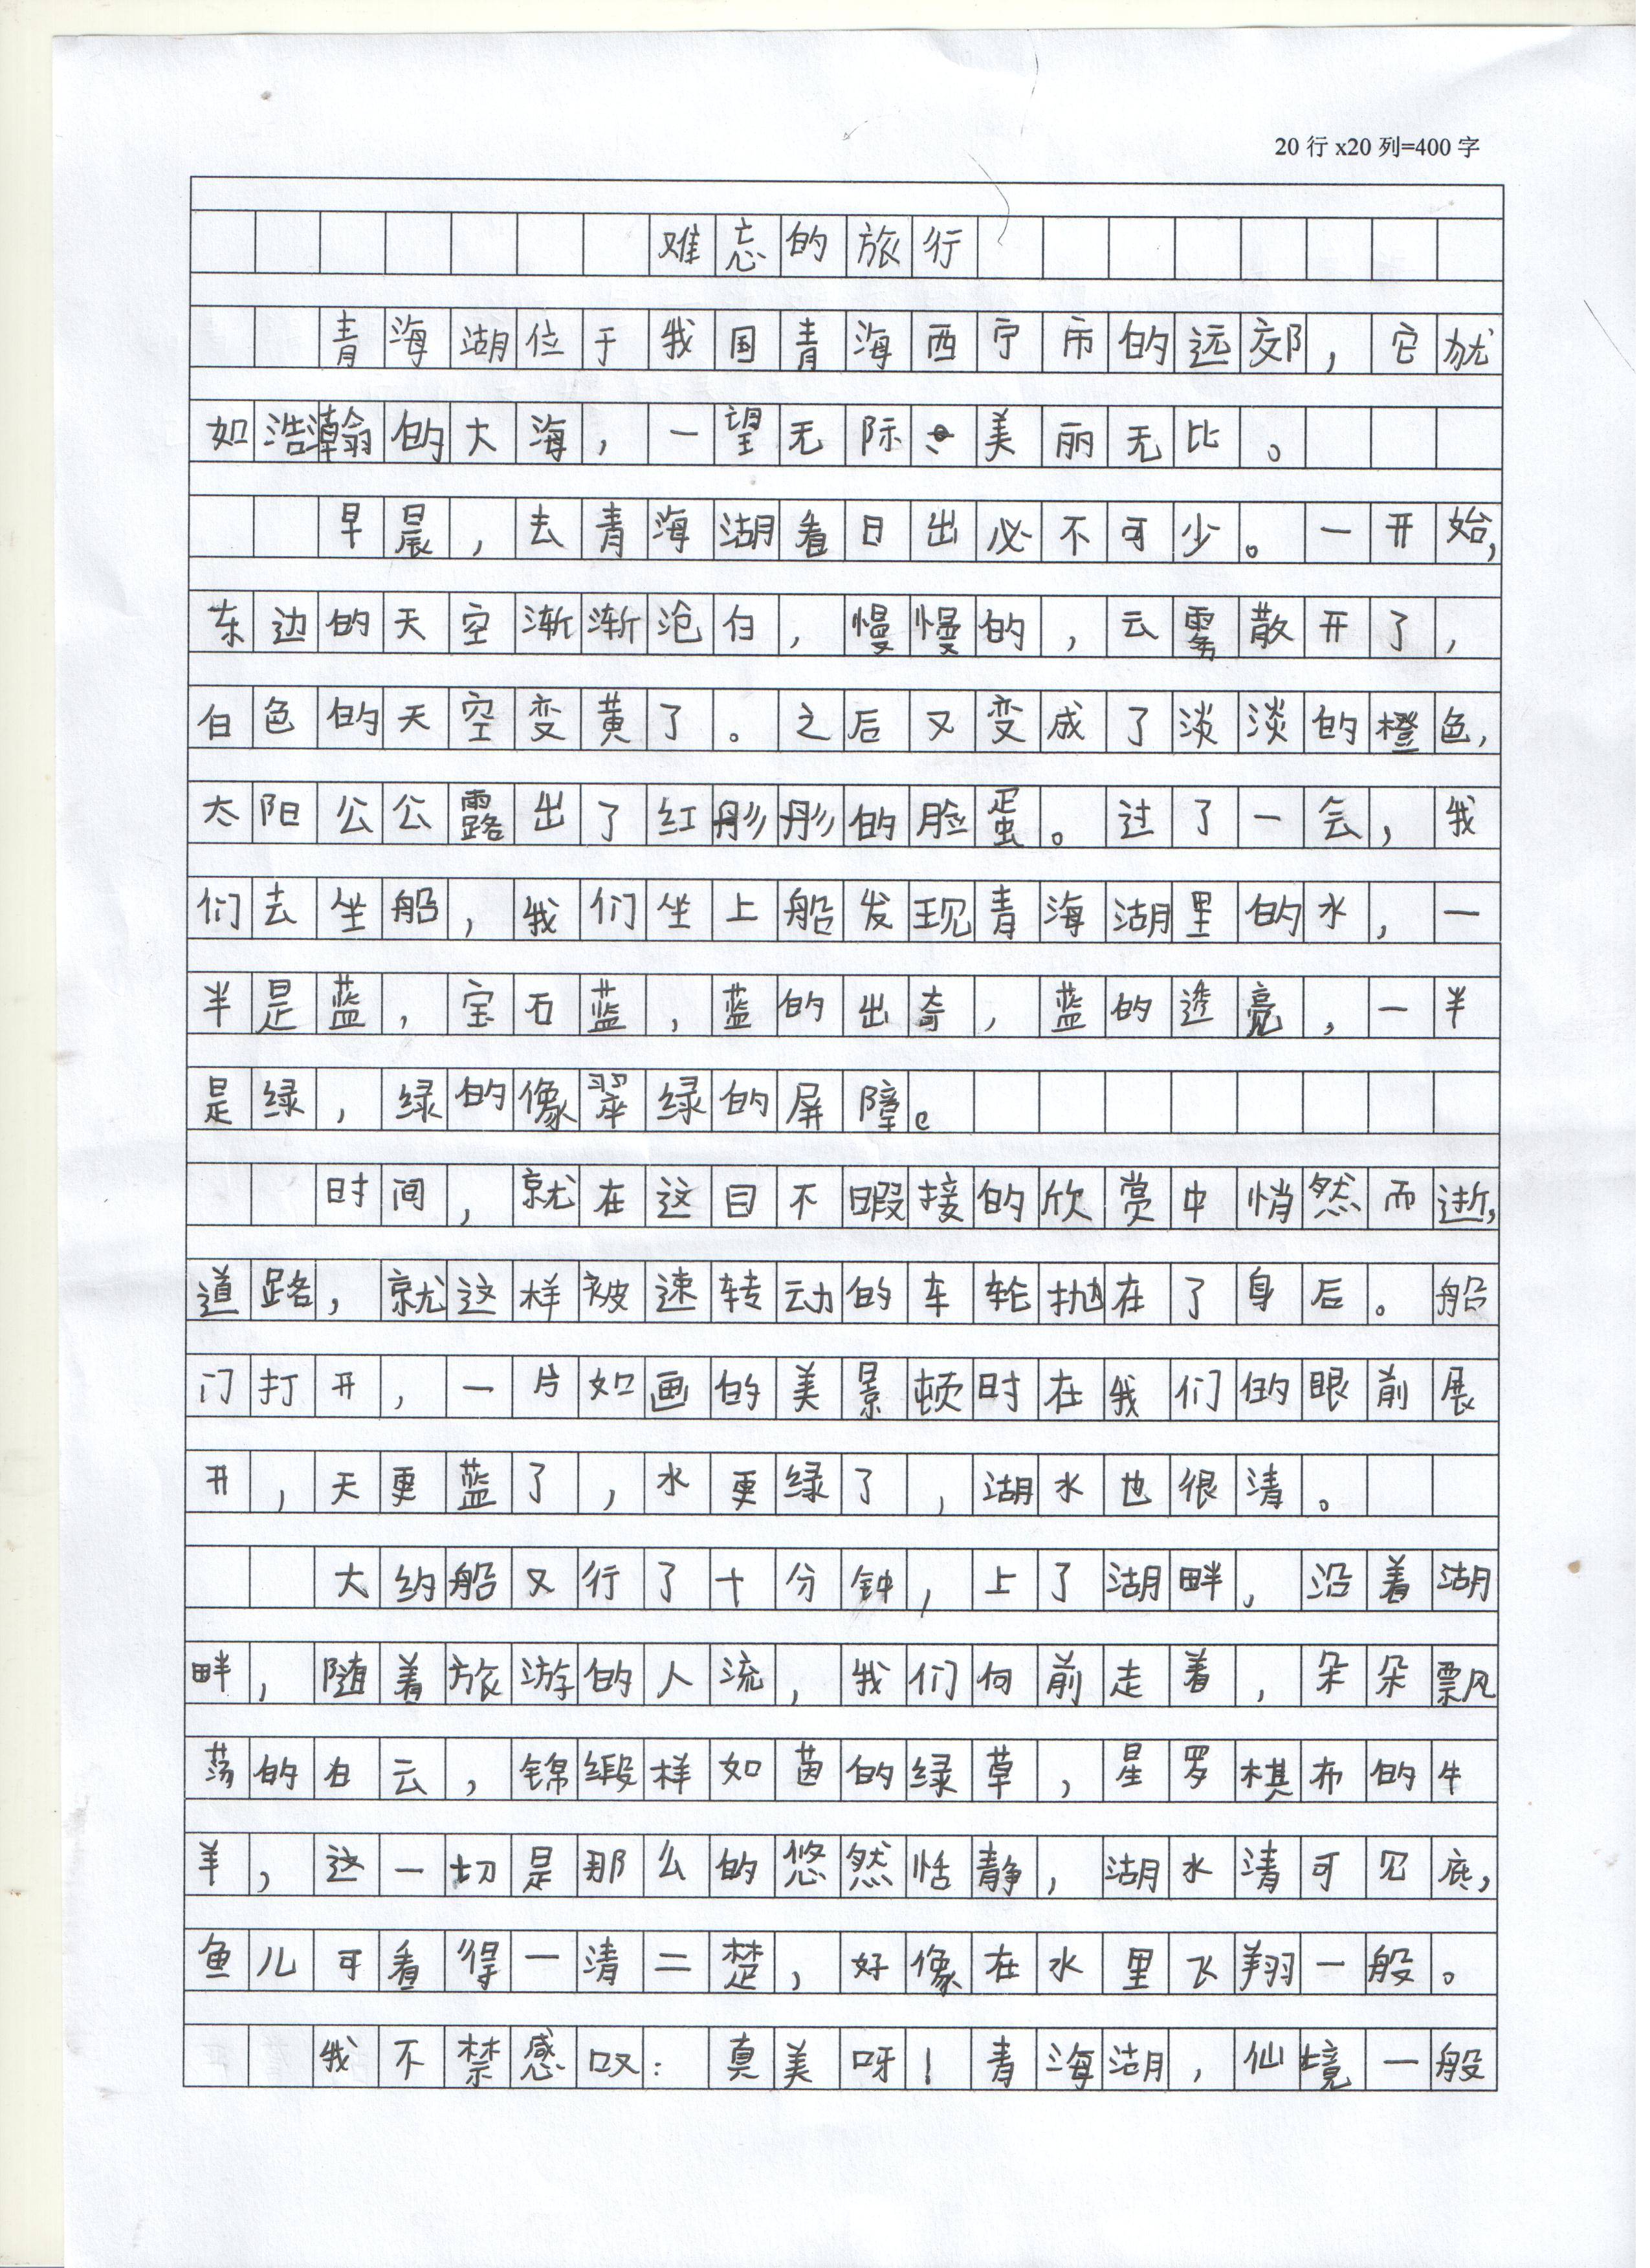 20行x20列=400字
难忘的旅行
青海湖位于我国青海西宁市的远郊，它就
如浩瀚的大海，一望无际，美丽无比。
早晨，去青海湖看日出必不可少。一开始，
东边的天空渐渐沧白，慢慢的，云雾散开了，
白色的天空变黄了。之后又变成了淡淡的橙色，
太阳公公露出了红彤彤的脸蛋。过了一会，我
们去坐船，我们坐上船发现青海湖里的水，一
半是蓝，宝石蓝，蓝的出奇，蓝的透亮，一半
是绿，绿的像翠绿的屏障。
时间，就在这目不暇接的欣赏中悄然而逝，
道路，就这样被速转动的车轮抛在了身后。船
门打开，一片如画的美景顿时在我们的眼前展
开，天更蓝了，水更绿了，湖水也很清。
大约船又行了十分钟，上了湖畔，沿着湖
畔，随着旅游的人流，我们向前走着，朵朵飘
荡的白云，锦缎样如茵的绿草，星罗棋布的牛
羊，这一切是那么的悠然恬静，湖水清可见底，
鱼儿可看得一清二楚，好像在水里飞翔一般。
我不禁感叹：真美呀！青海湖，仙境一般